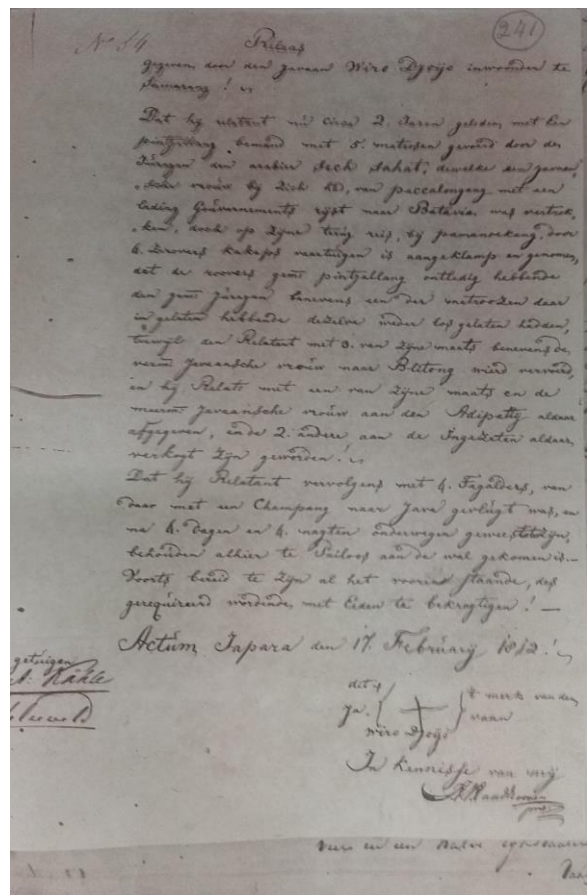 241
No 54
Relaas
gegeven door den Javaan Wiro Djoijo inwoonder te
Samarang!
Dat hij relatant nu circa 2. Jaren geleden, met een
pintjallang bemand met 5. matroosen gevoerd door de
Juragan den arabier Sech Sahat, dewelke een javaan
sche vrouw bij zich had, van paccalongang met een
lading Gouvernements rijst naar Batavia was vertrok
ken, doch op zijne terug reis, bij pamanoekang, door
4. Zeerovers kakaps vaartuigen is aangeklamp en genomen,
dat de roovers gem: pintjallang ontledig hebbende
den gem: Juragan benevens een der matroosen daar
in gelaten hebbende dezelve weder los gelaten hadden,
terwijl den Relatant met 3. van zijne maats benevens de
verm: Javaansche vrouw naar Blitong wierd vervoerd,
en hij Relatt met een van zijne maats en de
meerm: Javaansche vrouw aan den Adipattij aldaar
afgegeven, en de 2. andere aan de Ingezeten aldaar
verkogt zijn geworden!
Dat hij Relatant vervolgens met 4. Tagalders, van
daar met een Champang naar Java gevlugt was, en
na 4. dagen en 4. nagten onderwegen geweest zijn,
behouden alhier te aan de wal gekomen is.
Voorts bereid te zijn al het voorenstaande, des
gerequireerd wordende, met Eeden te bekragtigen! —
Actum Japara den 17. February 1812!
getuigen
dit is
't merk van den
Ja
vaan
Wiro Djoijo
In kennisse van mij